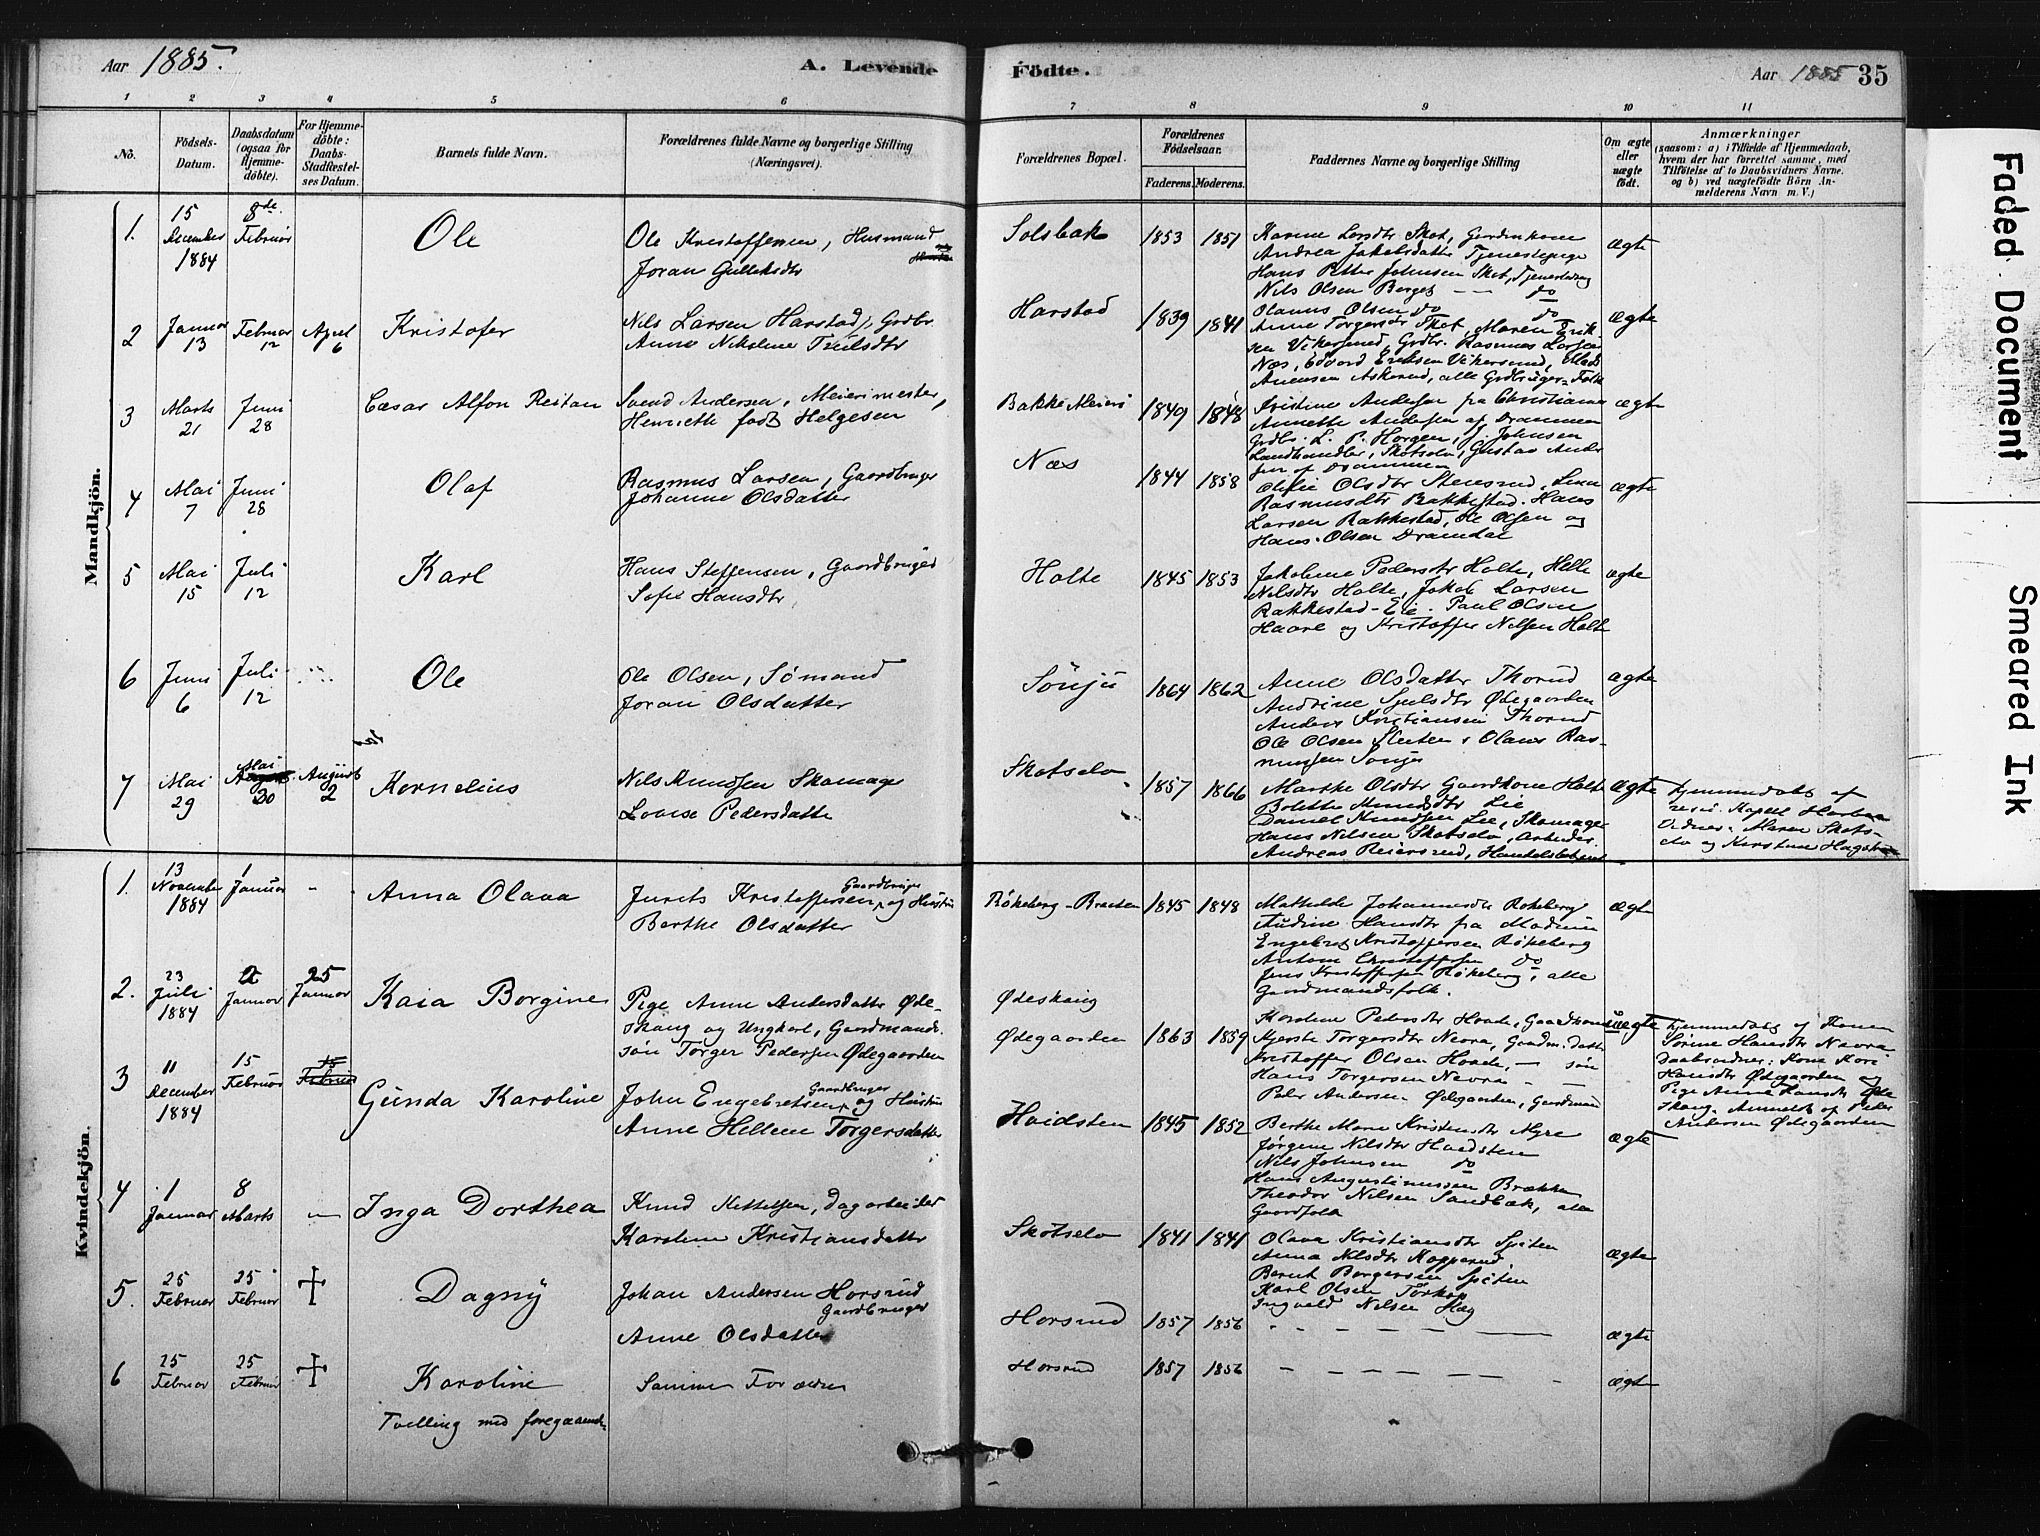 Aar 1885.
A. Levende Födte.
Aar 1885 35
1 2 3 4 5 6 7 8 9 10 11
No.
Födsels-Datum.
Daabsdatum (ogsaa for Hjemme-döbte).
For Hjemme-döbte: Daabs-Stadfæstel-ses Datum.
Barnets fulde Navn.
Forældrenes fulde Navne og borgerlige Stilling (Næringsvei).
Forældrenes Bopæl.
Forældrenes Födselsaar.
Faderens. Moderens.
Faddernes Navne og borgerlige Stilling
Om ægte eller uægte födt.
Anmærkninger
(saasom: a) i Tilfælde af Hjemmedaab, hvem der har forrettet samme, med Tilföielse af to Daabsvidners Navne. og b) ved uægtefödte Börn An-melderens Navn m. V.)
Mandkjön.
1. 15 December 1884
8de Februar
Ole
Ole Kristoffersen, Husmand
Joran Gulleksdtr
Solsbak 1853 1851
Karine Larsdtr Skot, Gardmkone
Andrea Jakobsdatter Tjenestepige
Hans Petter Johnsen Skot, Tjenestedreng
Nils Olsen Berget — do
Olaus Olsen do do
ægte
2 Januar 13
Februar 12
April 6
Kristofer
Nils Larsen Harstad, Grdbr
Anne Nikoline Trulsdtr
Harstad 1839 1841
Anne Torgersdtr Skot, Maren Erik
sen Vikersund, Grdbr. Rasmus Larsen
Næs, Edvard Eriksen Vikersund, Mads
Amensen Askerud, alle Grdbruger-Folk
ægte
3 Marts 21
Juni 28
Cæsar Alfon Reitan
Svend Andersen, Meierimester,
Henriette født Helgesen
Bakke Meieri 1849 1848
Kristine Andersen fra Christiania
Annette Andersen af Drammen
Grdbr. L. P. Horgen, J. Johnsen
Landhandler, Skotselv, Gustav Ander
sen af Drammen
ægte
4 Mai 7
Juni 28
Olaf
Rasmus Larsen, Gaardbruger
Johanne Olsdatter
Næs 1844 1858
Olsdtr Stensrud, Lina
Rasmusdtr Bakkestad. Hans
Larsen Rakkestad, Ole Olsen og
Hans Olsen Dramdal
ægte
5 Mai 15
Juli 12
Karl
Hans Steffensen, Gaardbruger
Sofie Hansdtr
Holte 1845 1853
Jakobine Pedersdtr Holte, Helle
Nilsdtr Holte, Jakob Larsen
Rakkestad-Eie. Paul Olsen
Haave og Kristoffer Nilsen Holte
ægte
6 Juni 6
Juli 12
Ole
Ole Olsen, Sømand
Joran Olsdatter
Sönju 1864 1862
Anne Olsdatter Thorud
Andrine Syulsdtr Ødegaarden
Anders Kristiansen Thorud
Ole Olsen Sluten, Olaus Ras-
mussen Sonju
ægte
7 Mai 29
Mai 30
August 2
Kornelius
Nils Knudsen Skomager
Lovise Pedersdatter
Skotselv 1857 1866
Marthe Olsdtr Gaardkone Holte
Bolette Knudsdtr Lie
Daniel Knudsen Lie, Skomager
Hans Nilsen Skotselv, Arbeider
Andreas Reiersrud, Handelsbetjent
ægte
Hjemmedøbt af
resid. Kapell
Vidner: Maren Skots-
elv og Kirstine
Kvindekjön.
1. 13 November 1884
1 Januar
-
Anna Olava
Gaardbruger
Kristoffersen, og Hustru
Berthe Olsdatter
Rökeberg-Braaten 1845 1848
Mathilde Johannesdtr Rokeberg
Andrine Hansdtr fra Modum
Engebret Kristoffersen Rökeberg
Anton Christoffersen do
Jens Kristoffersen Rökeberg, alle
Gaardmandsfolk.
ægte
2. 23 Juli 1884
2 Januar
25 Januar
Kaia Borgine
Pige Anne Andersdatter Øde-
skaug og Ungkarl, Gaardmands.
søn Torger Pedersen Ødegaarden
Ødeskaug
Ødegaarden 1863 1859
Karoline Pedersdtr Hoade, Gaardkone
Kjersti Torgersdtr Nevra, Gaardm. datter
Kristoffer Olsen Hoade, — søn
Hans Torgersen Nevra - —
Peder Andersen Ødegaarden, Gaardmand
uægte
Hjemmedøbt af Konen
Sørine Hansdtr Nevra
Daabsvidner: Kone Kari
Hansdtr Ødegaarden og
Pige Anne Hansdtr Øde
skaug. Anmeldt af Peder
Andersen Ødegaarden
3 11 December 1884
15 Februar
Gunda Karoline
Gaardbruger
John Engebretsen, og Hustru
Anne Hellene Torgersdatter
Hvidsten 1845 1852
Berthe Marie Kristensdtr Myre
Jørgine Nilsdtr Hvidsten
Nils Johnsen do
Hans Augustinussen Brækka
Theodor Nilsen Sandbæk, alle
Gaardfolk
ægte
4 1 Januar
8 Marts
—
Inga Dorthea
Knud Kittelsen, Dagarbeider
Karoline Kristiansdatter
Skotselv 1841 1841
Olava Kristiansdtr Spiten
Anna Nilsdtr Kopperud
Bernt Borgersen Spiten
Karl Olsen Torkop
Ingvald Nilsen Hag
ægte
5. 25 Februar
25 Februar
†
Dagny
Johan Andersen Horsrud
Gaardbruger
Anne Olsdatter
Horsrud 1857 1856
- - — — — —
ægte
6 25 Februar
25 Februar
†
Karoline
Samme Forældre
Tvilling med foregaaende
Horsrud 1857 1856
- — — — — — -
ægte
Faded Document
Smeared Ink